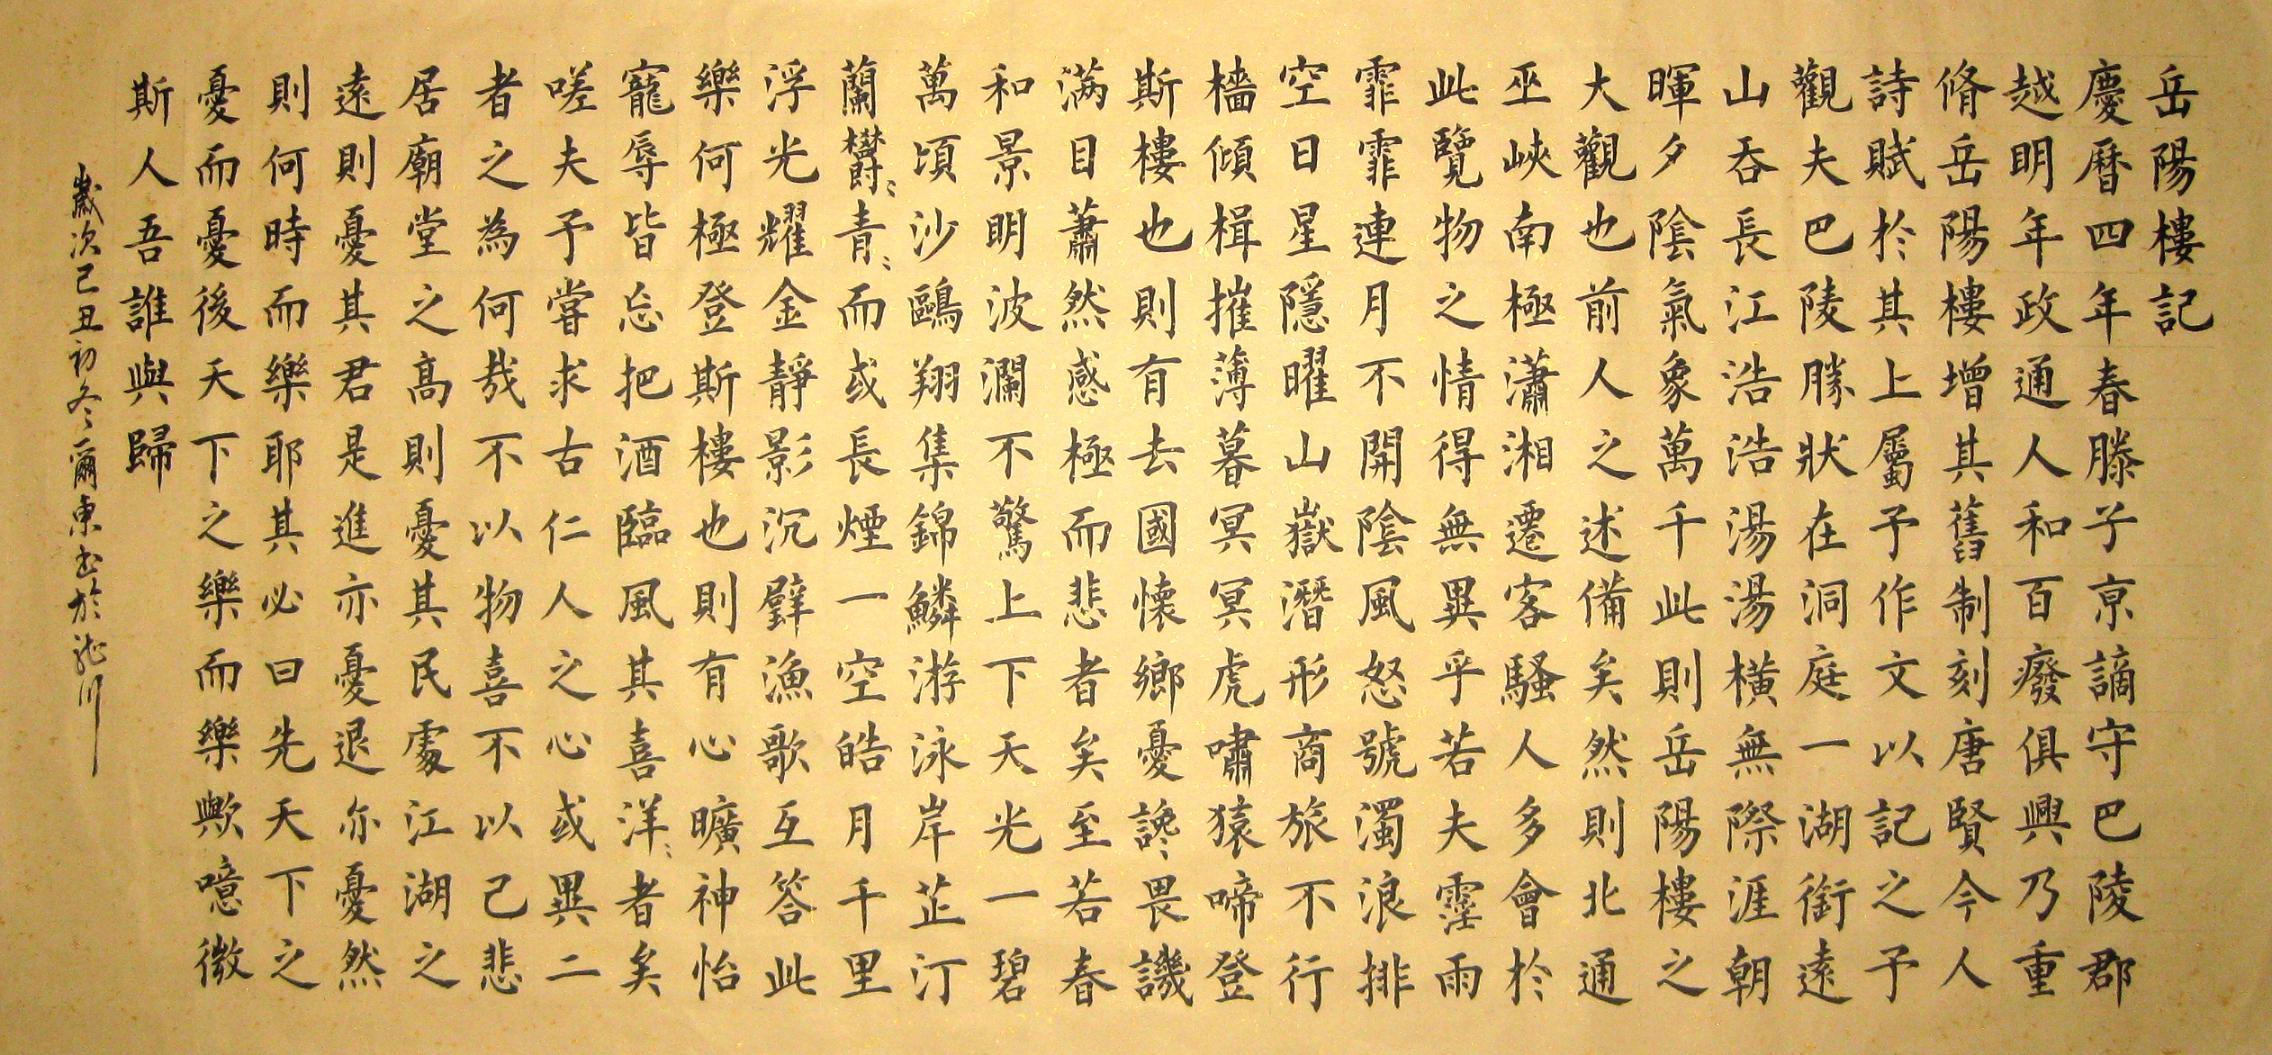 岳陽樓記
慶曆四年春滕子京謫守巴陵郡
越明年政通人和百廢俱興乃重
脩岳陽樓增其舊制刻唐賢今人
詩賦於其上屬予作文以記之予
觀夫巴陵勝狀在洞庭一湖銜遠
山吞長江浩浩湯湯橫無際涯朝
暉夕陰氣象萬千此則岳陽樓之
大觀也前人之述備矣然則北通
巫峽南極瀟湘遷客騷人多會於
此覽物之情得無異乎若夫霪雨
霏霏連月不開陰風怒號濁浪排
空日星隱曜山嶽潛形商旅不行
檣傾楫摧薄暮冥冥虎嘯猿啼登
斯樓也則有去國懷鄉憂讒畏譏
滿目蕭然感極而悲者矣至若春
和景明波瀾不驚上下天光一碧
萬頃沙鷗翔集錦鱗游泳岸芷汀
蘭欝〻青〻而或長煙一空皓月千里
浮光耀金靜影沉璧漁歌互答此
樂何極登斯樓也則有心曠神怡
寵辱皆忘把酒臨風其喜洋〻者矣
嗟夫予嘗求古仁人之心或異二
者之為何哉不以物喜不以己悲
居廟堂之高則憂其民處江湖之
遠則憂其君是進亦憂退亦憂然
則何時而樂耶其必曰先天下之
憂而憂後天下之樂而樂歟噫微
斯人吾誰與歸
歲次己丑初冬爾東書於龍川